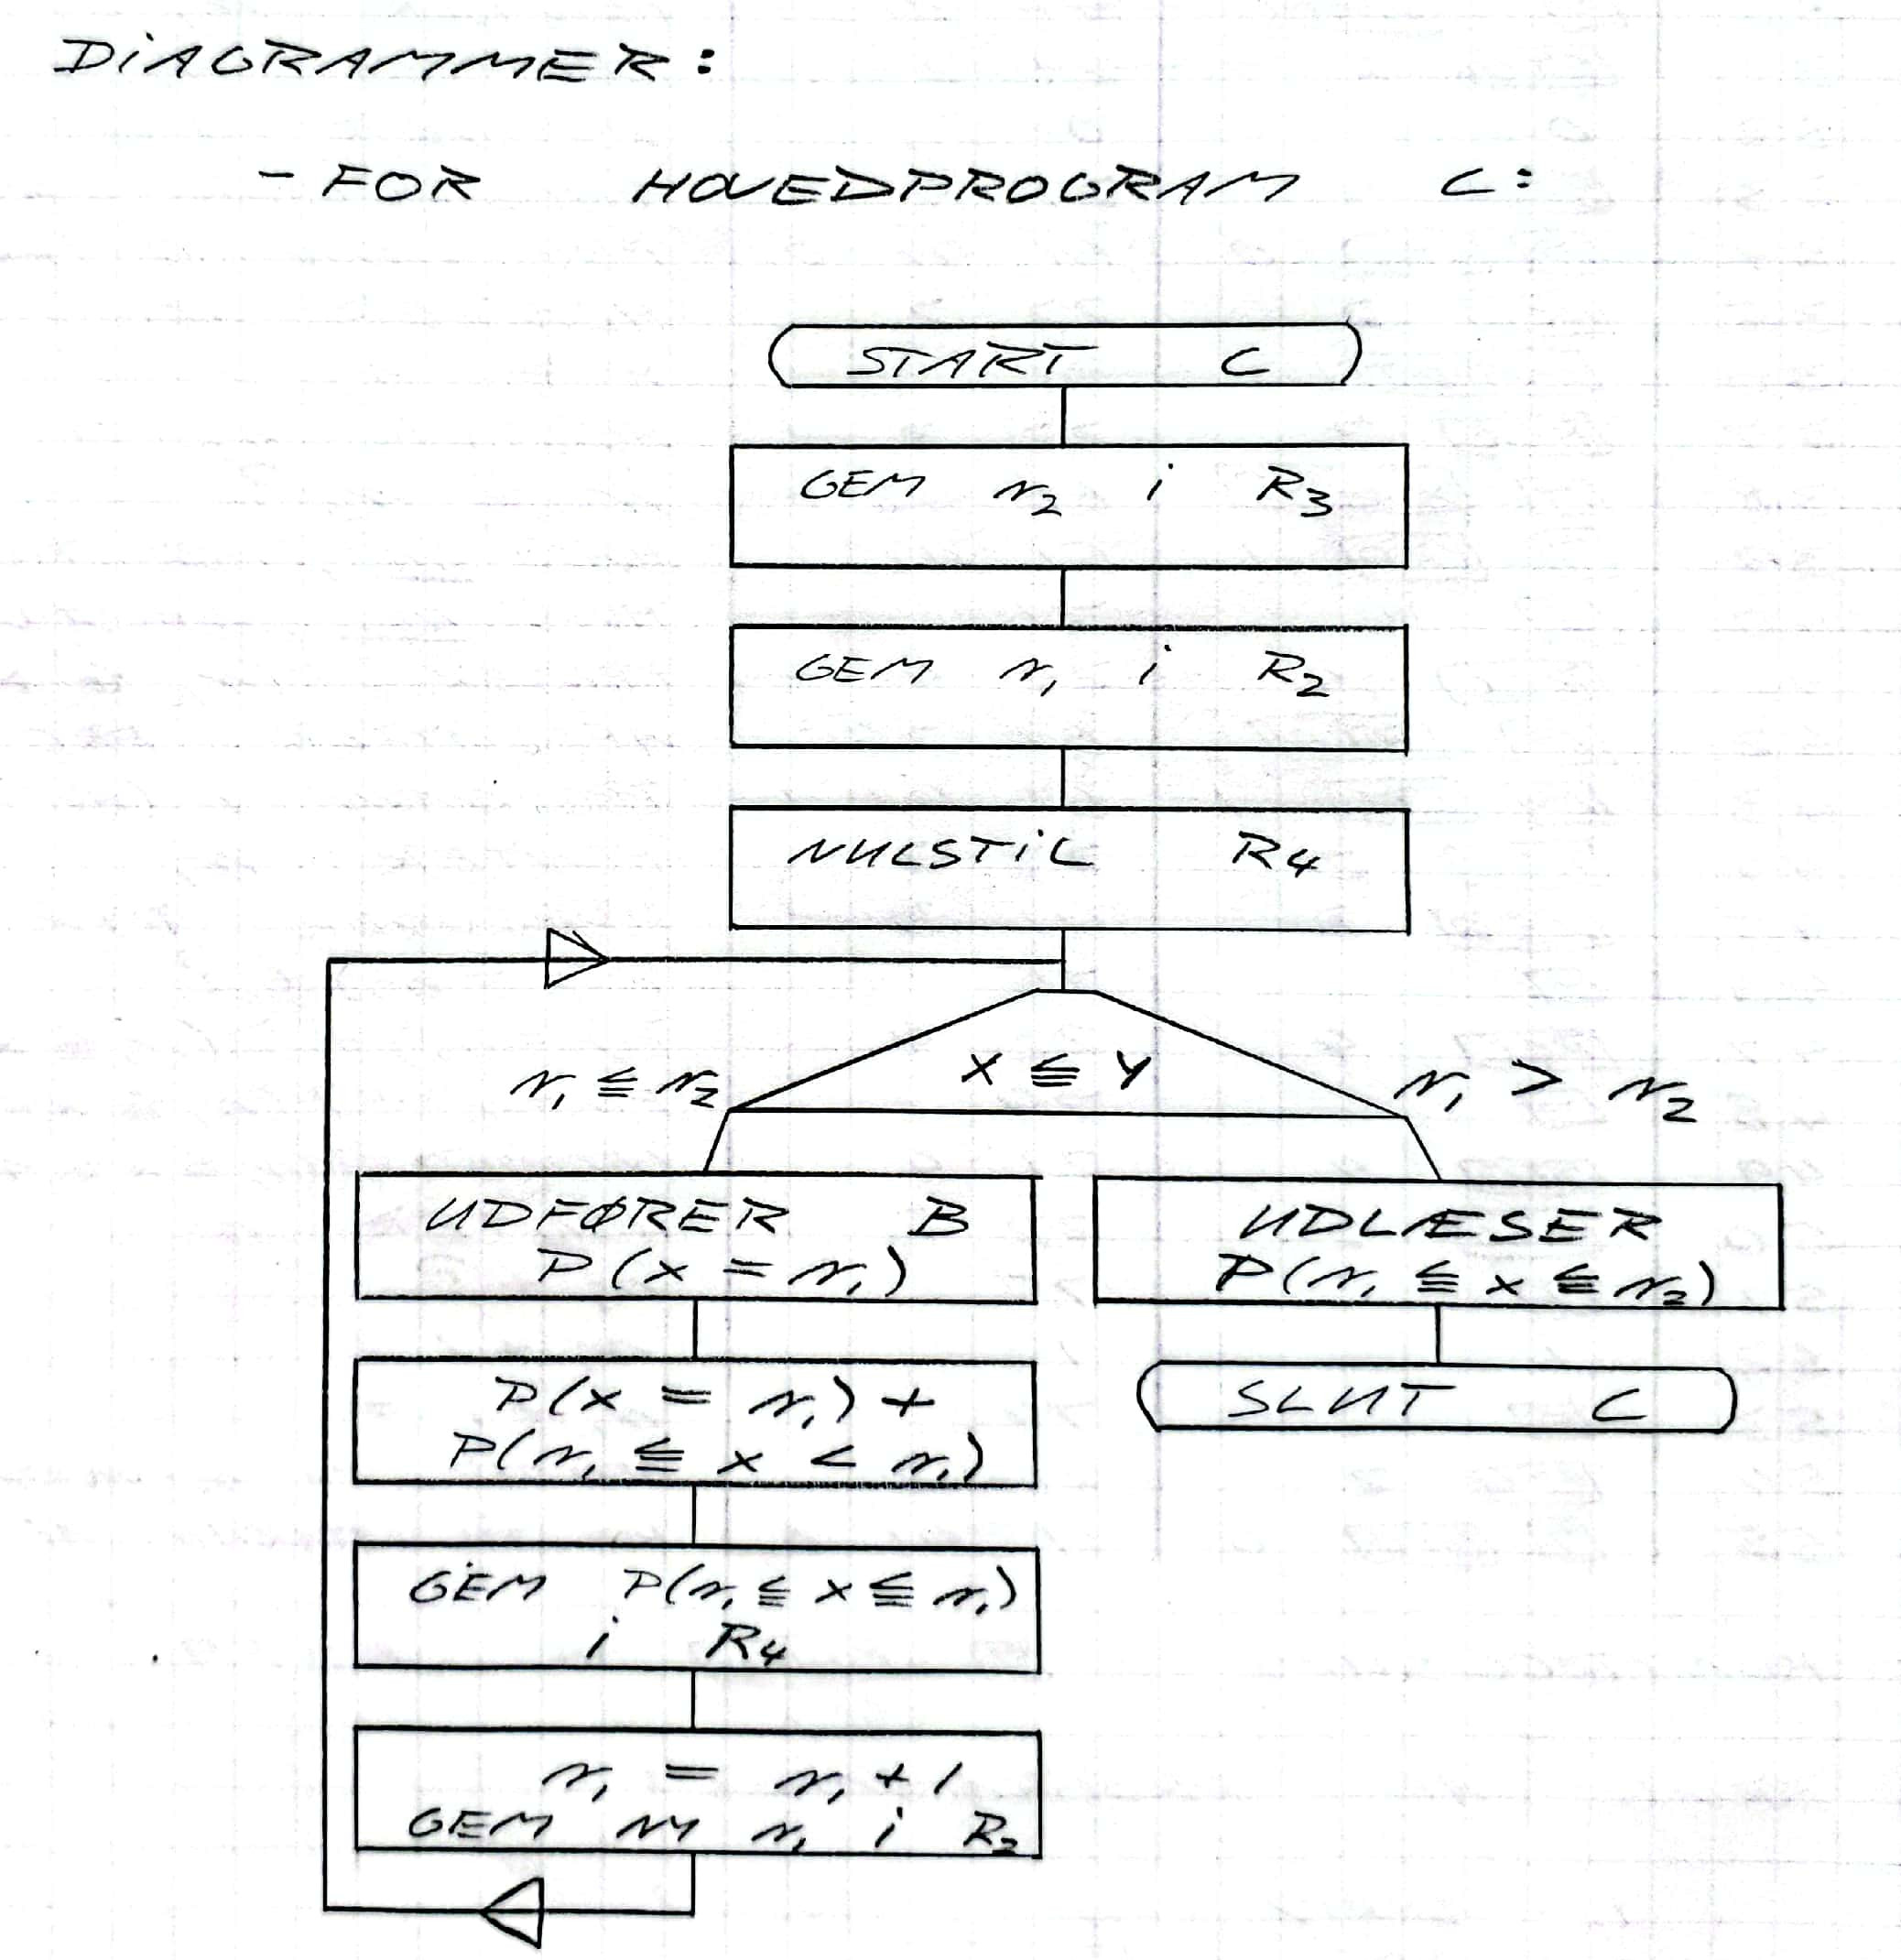 DiAGRAMMER:
- FOR HOVEDPROGRAM C:
START C
GEM r₂ i R₃
GEM r₁ i R₂
NULSTiL R₄
X ≦ Y
r₁ ≦ r₂
r₁ > r₂
UDFØRER B
P(x = r₁)
P(x = r₁) +
P(r₁ ≦ x < r₁)
GEM P(r₁ ≦ x ≦ r₁)
i R₄
r₁ = r₁ + 1
GEM NY r₁ i R₂
UDLÆSER
P(r₁ ≦ x ≦ r₂)
SLUT C